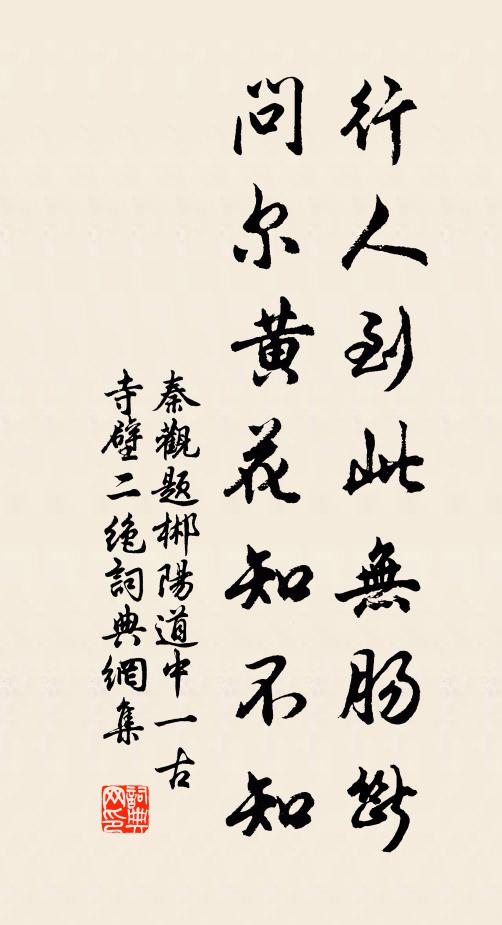 行人到此無腸斷
問尔黄花知不知
秦觀題郴陽道中一古
寺壁二絶詞典網集
詞典網印